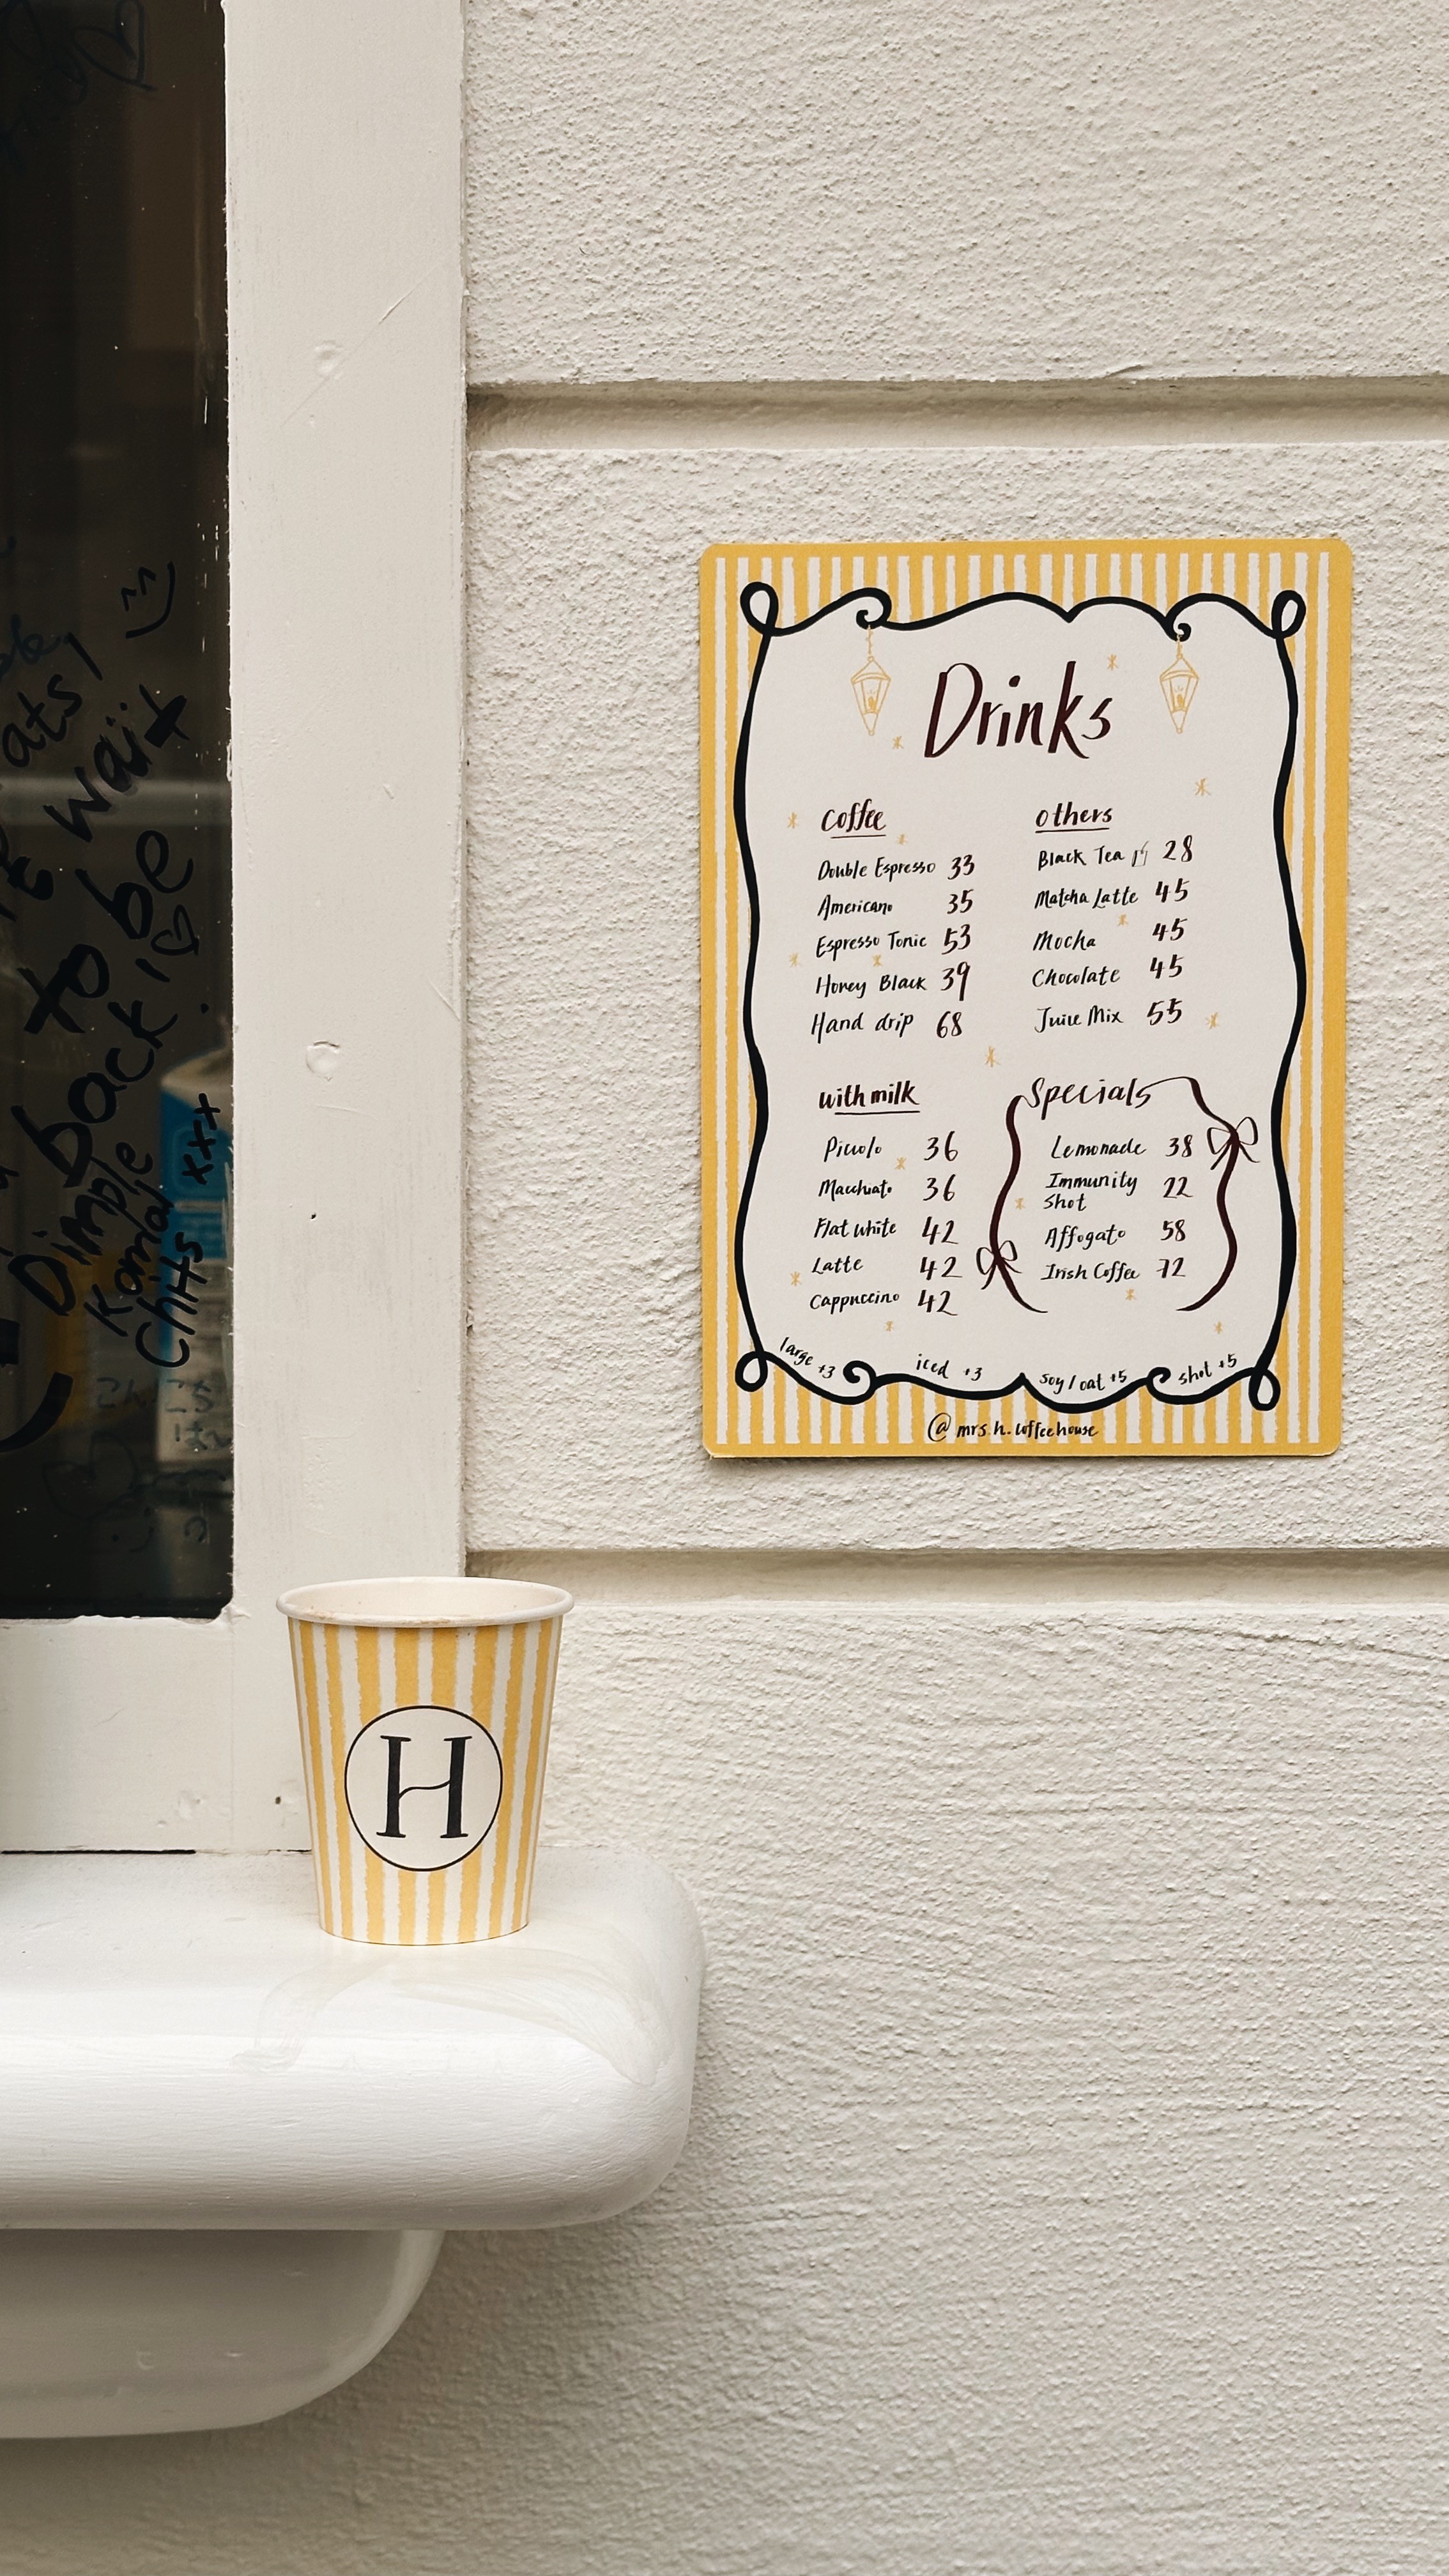 Drinks
coffee
Double Espresso 33
Americano 35
Espresso Tonic 53
Honey Black 39
Hand drip 68
others
Black Tea 28
Matcha Latte 45
Mocha 45
Chocolate 45
Juice Mix 55
with milk
Piccolo 36
Macchiato 36
Flat white 42
Latte 42
Cappuccino 42
Specials
Lemonade 38
Immunity
shot 22
Affogato 58
Irish Coffee 72
large +3
iced +3
soy / oat +5
shot +5
@mrs.h.coffeehouse
H
ats,
wait
to be
back
Dimple
Komal
xxx